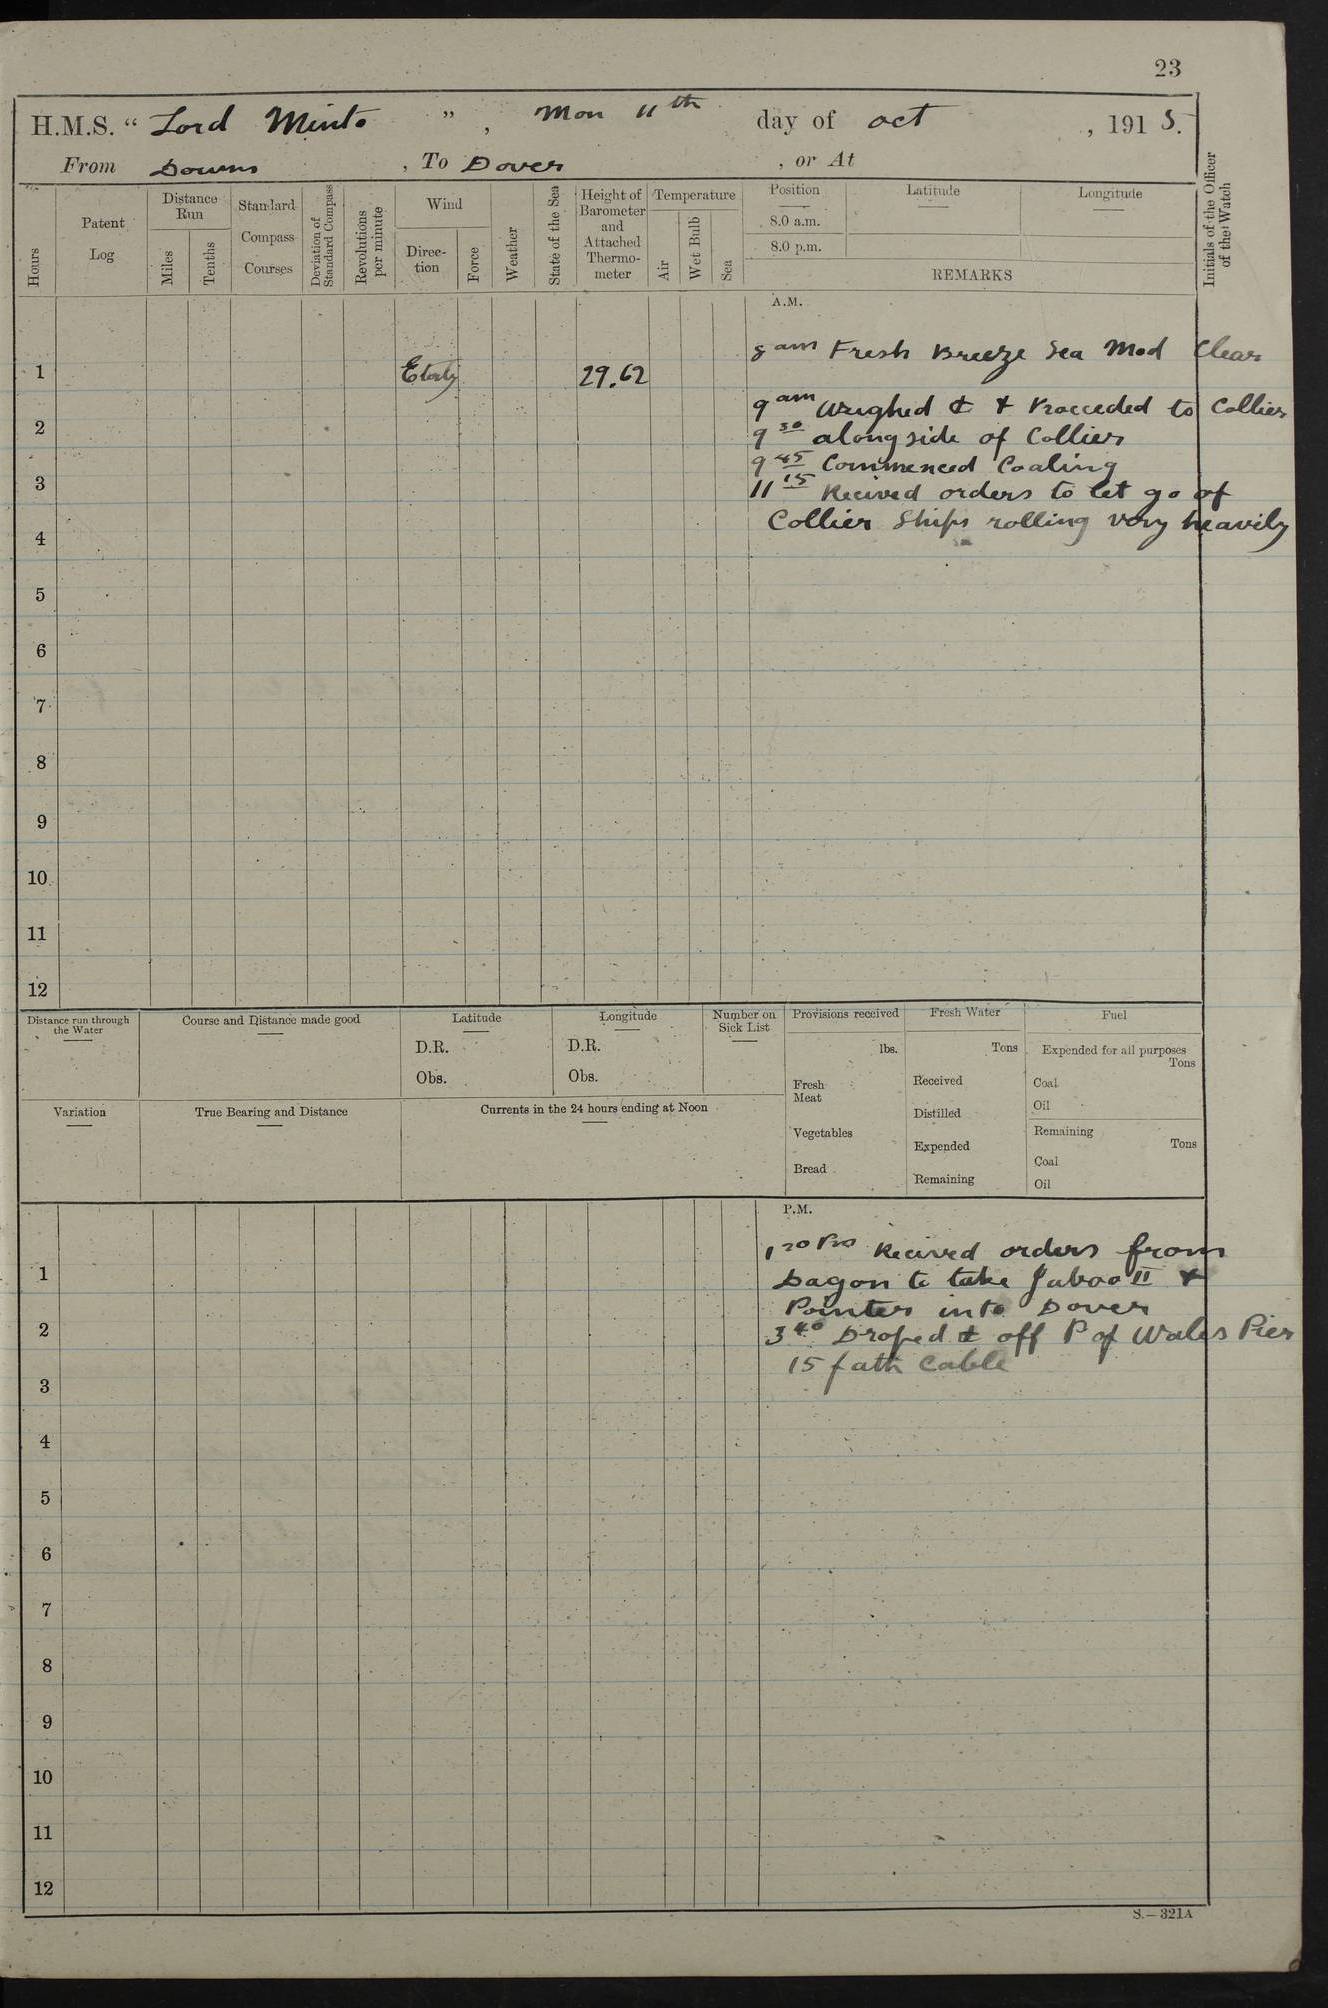 23
H.M.S. “ Lord Minto ” , Mon 11th day of Oct , 1915.
From Downs , To Dover , or At
Hours
Patent Log
Distance Run
Miles
Tenths
Standard Compass Courses
Deviation of Standard Compass
Revolutions per minute
Wind
Direc-tion
Force
Weather
State of the Sea
Height of Barometer and Attached Thermo-meter
Temperature
Air
Wet Bulb
Sea
Position
8.0 a.m.
8.0 p.m.
Latitude
Longitude
REMARKS
Initials of the Officer of the Watch
A.M.
8 am Fresh Breeze Sea Mod Clear
1 Eterly 29.62
9 am Weighed ⚓ & Proceeded to Collier
2
9 30 alongside of Collier
9 45 Commenced Coaling
3
11 15 Recived orders to let go of
Collier Ships rolling very heavily
4
5
6
7
8
9
10
11
12
Distance run through the Water
Course and Distance made good
Latitude
D.R.
Obs.
Longitude
D.R.
Obs.
Number on Sick List
Provisions received
lbs.
Fresh Meat
Vegetables
Bread
Fresh Water
Tons
Received
Distilled
Expended
Remaining
Fuel
Expended for all purposes
Tons
Coal
Oil
Remaining
Tons
Coal
Oil
Variation
True Bearing and Distance
Currents in the 24 hours ending at Noon
P.M.
Recived orders from
1
Dagon to take Jaboo II &
Pointer into Dover
2
3 40 Droped ⚓ off P of Wales Pier
15 fath Cable
3
4
5
6
7
8
9
10
11
12
S.—321A